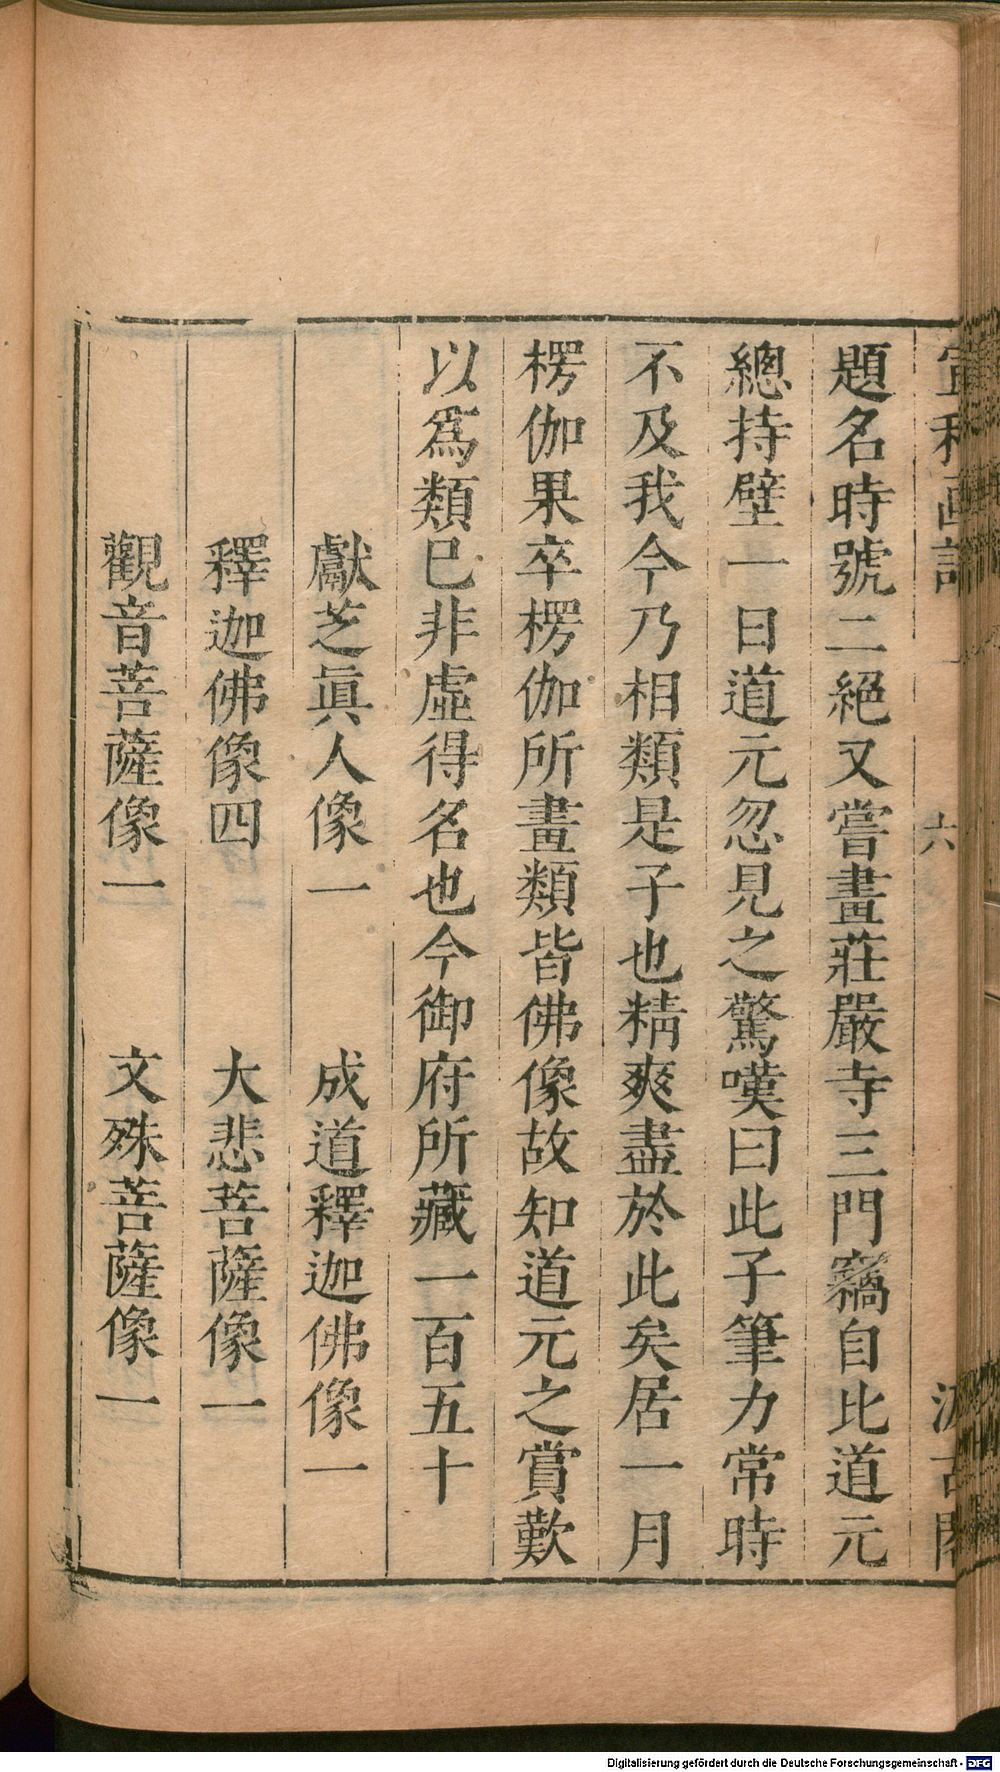 題名時號二絕又嘗畫莊嚴寺三門竊自比道元
總持壁一日道元忽見之驚嘆曰此子筆力常時
不及我今乃相類是子也精爽盡於此矣居一月
楞伽果卒楞伽所畫類皆佛像故知道元之賞歎
以爲類巳非虛得名也今御府所藏一百五十
獻芝眞人像一　成道釋迦佛像一
釋迦佛像四　大悲菩薩像一
觀音菩薩像一　文殊菩薩像一
六
Digitalisierung gefördert durch die Deutsche Forschungsgemeinschaft - DFG